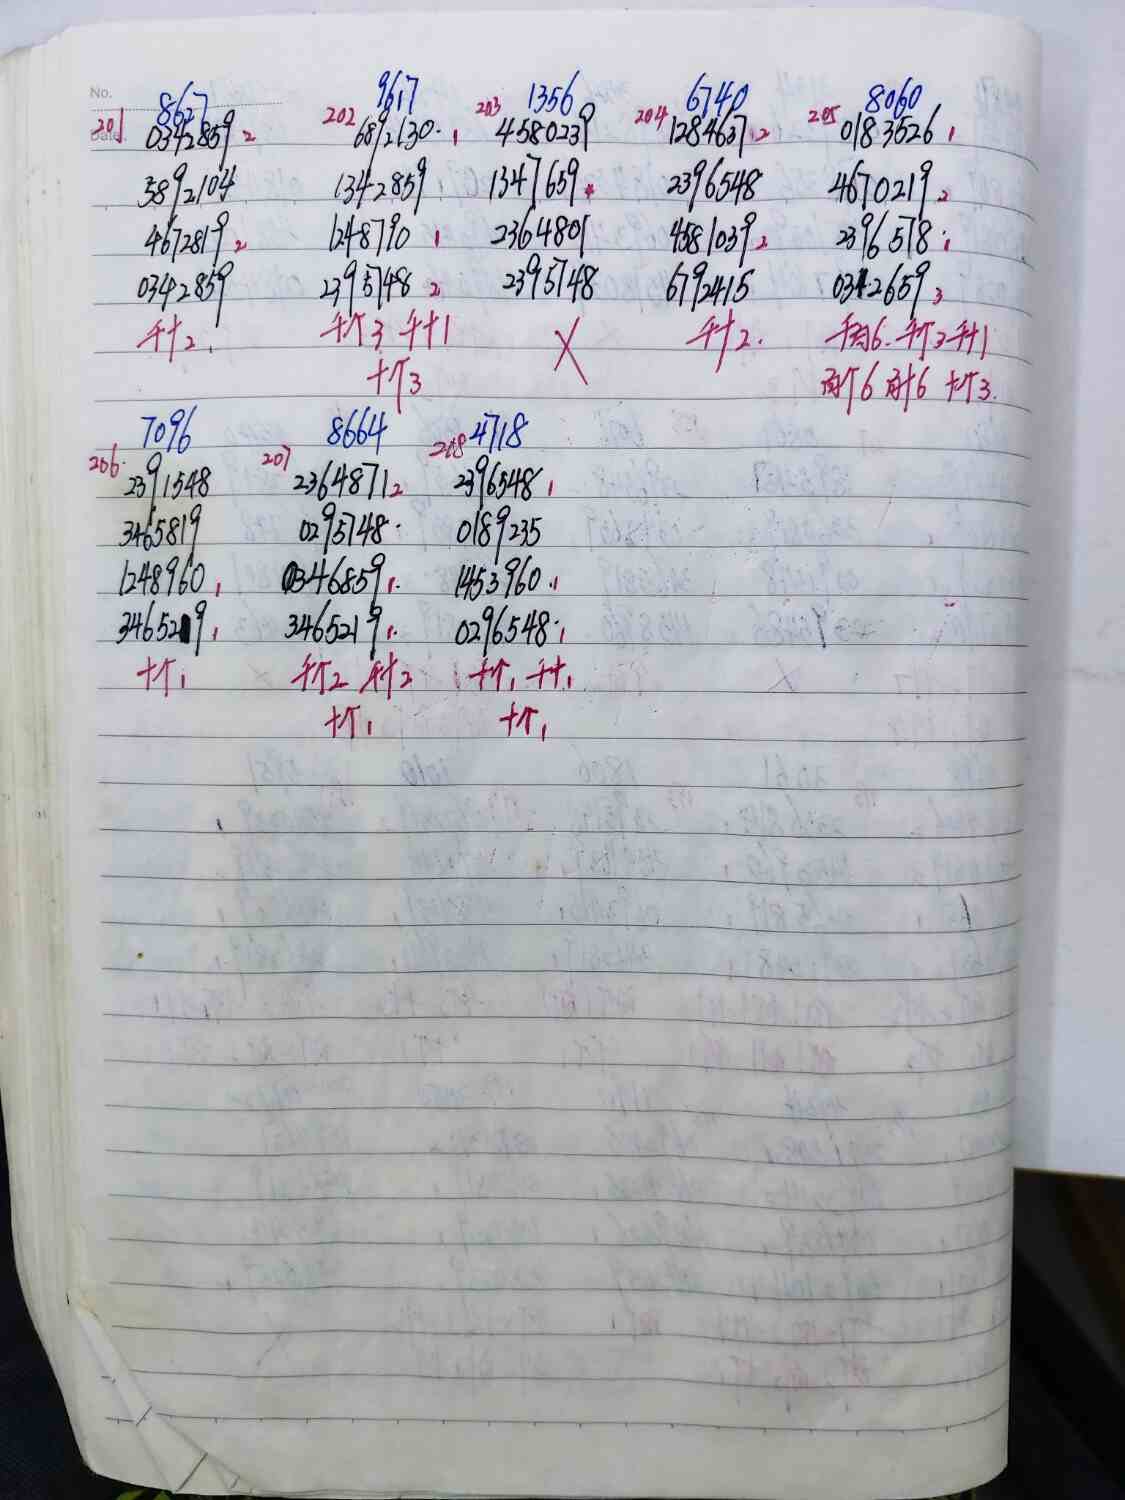 No.
8627 9617 1356 6740 8060
201 202 203 204 205
Date
0342859 2 6892130 · 1 4580239 1284637 2 0183526 1
3892104 1342859 1347659 2396548 4670219 2
4672819 2 1248790 1 2364801 4581039 2 2396578 · 1
0342859 2395748 2 2395748 6792415 0342659 3
千十2. 千个3 千十1 X 千十2. 千百6. 千个3 千十1
十个3 百个6 百十6 十个3.
7096 8664 4718
206 207 208
2391548 2364871 2 2396548 1
3465819 0295748 · 0189235
1248960 1 0346859 1 · 1453960 · 1
3465219 1 3465219 1 · 0296548 · 1
十个1 千个2 千十2 千个1 千十1
十个1 十个1